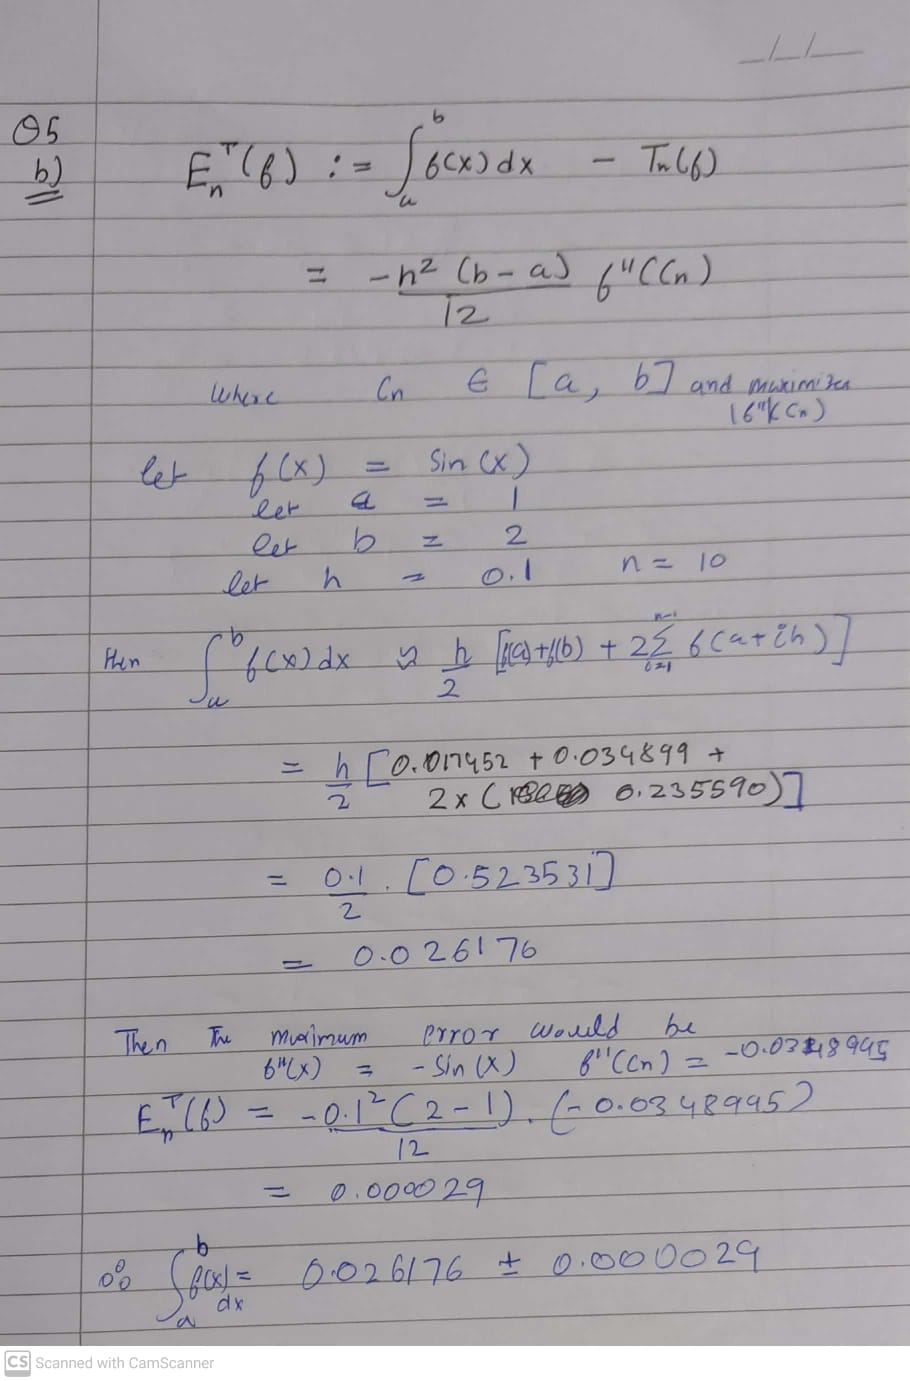 _/_/_
Q5
b) Eₙᵀ(f) := ∫ₐᵇ f(x) dx - Tn(f)
= -h² (b-a) / 12 f''(Cn)
Where Cn ∈ [a, b] and maximizes
|f''(Cn)
let f(x) = Sin(x)
let a = 1
let b = 2
let h = 0.1 n = 10
then ∫ₐᵇ f(x) dx ≈ h/2 [f(a)+f(b) + 2 Σᵢ₌₁ⁿ⁻¹ f(a+ih)]
= h/2 [0.017452 + 0.034899 +
2 x ( 0.235590)]
= 0.1/2 . [0.523531]
= 0.026176
Then The maximum error would be
f''(x) = - Sin(x) f''(Cn) = -0.0348995
Eₙᵀ(f) = -0.1² (2-1) / 12 . (-0.0348995)
= 0.000029
∴ ∫ₐᵇ f(x) dx = 0.026176 ± 0.000029
CS Scanned with CamScanner